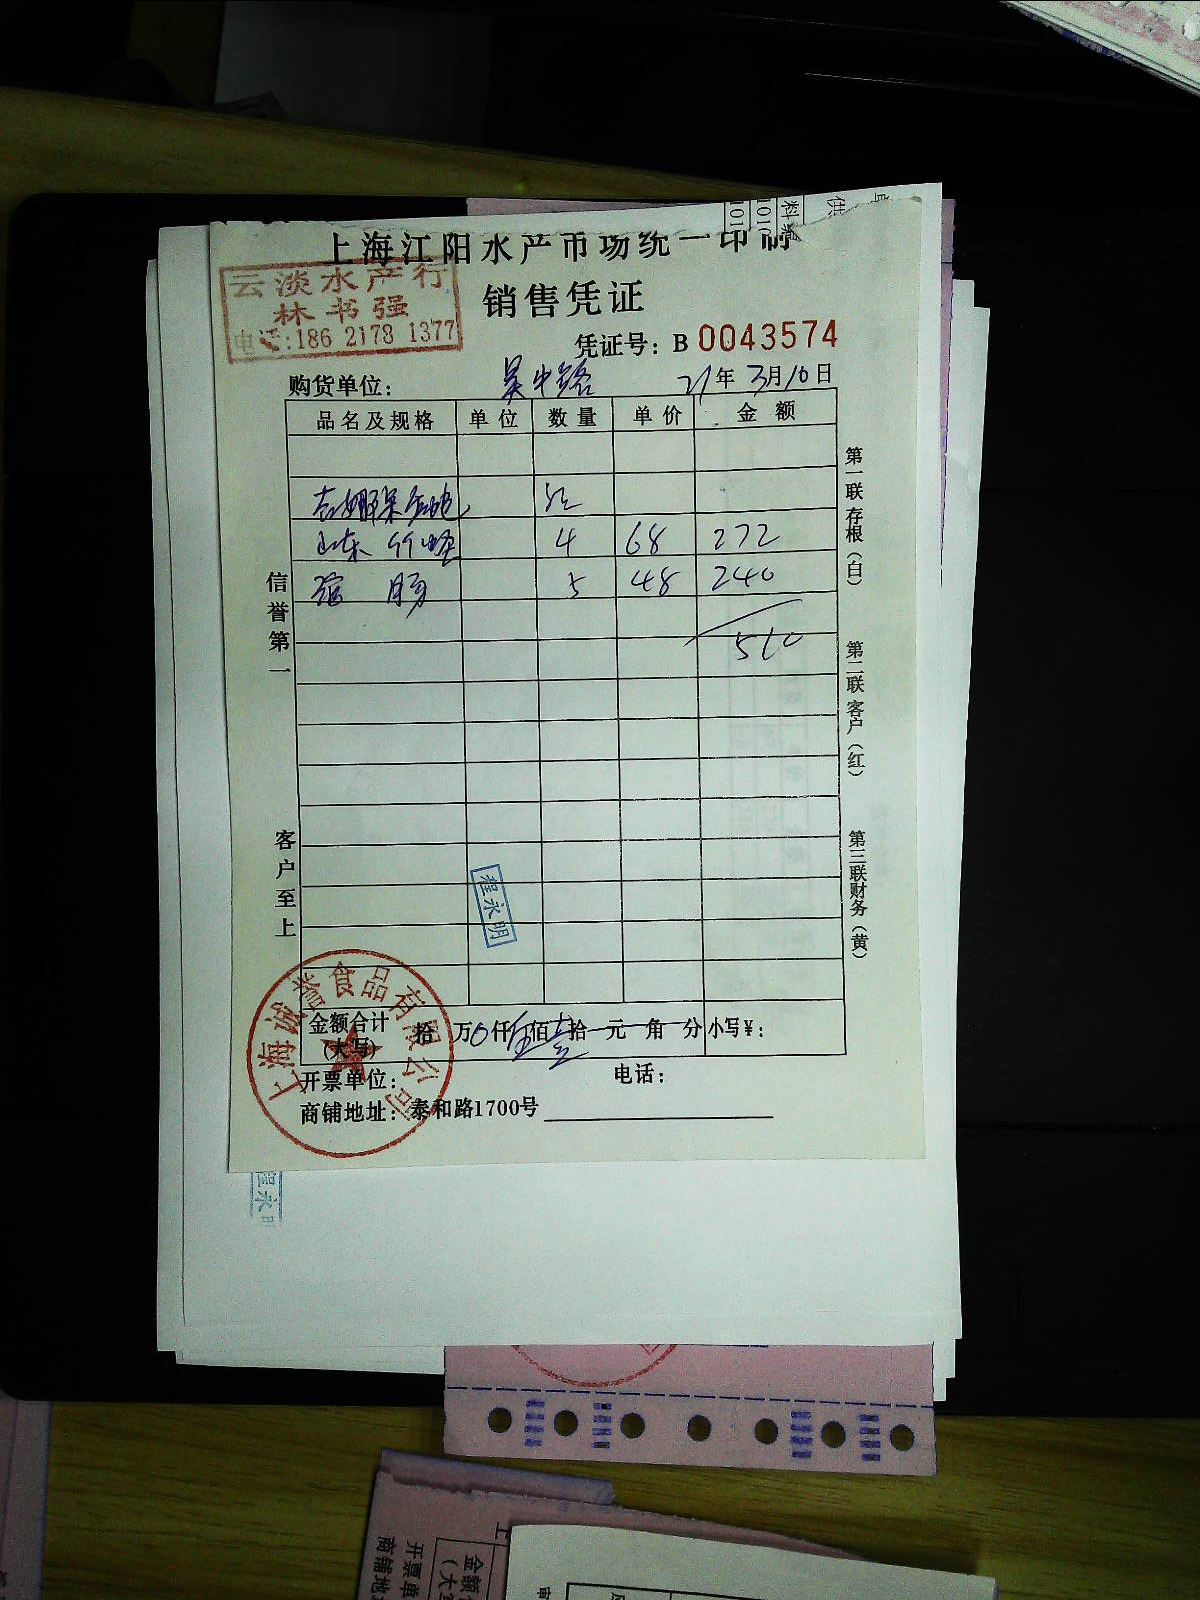 上海江阳水产市场统一印制
销售凭证
云淡水产行
林书强
电话:186 2178 1377
凭证号: B 0043574
购货单位: 吴中路 21年3月10日
品名及规格 单位 数量 单价 金额
山东 竹蛏 4 68 272
肠 5 48 240
510
信誉第一
客户至上
第一联 存根(白)
第二联 客户(红)
第三联 财务(黄)
程永明
上海诚誉食品有限公司
金额合计(大写) 拾 万 0 仟 伍 佰 壹 拾 元 角 分 小写¥:
开票单位: 电话:
商铺地址: 泰和路1700号
程永明
金额
(大
开票单
商铺地